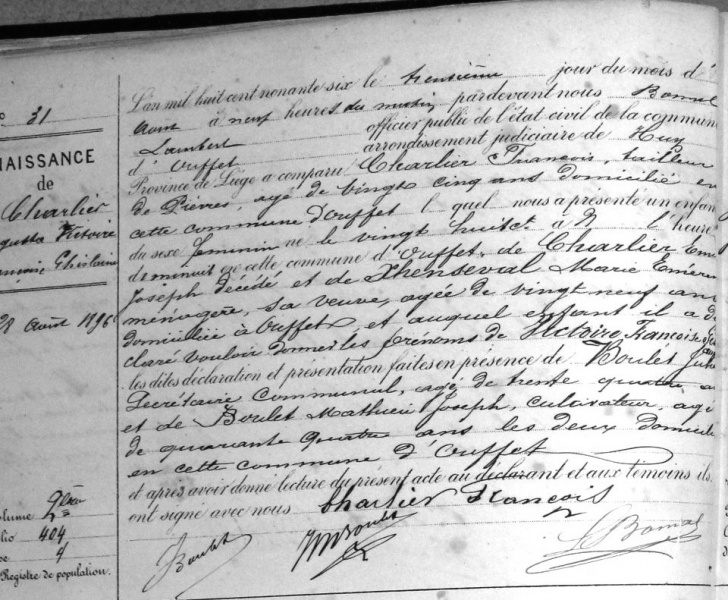 N° 31
NAISSANCE
de
Charlier
Augusta Victoire
Françoise Ghislaine
28 Août 1896
Volume 2ème
folio 404
4
Registre de population.
L'an mil huit cent nonante six le trentième jour du mois d'
Aout à neuf heures du matin pardevant nous Bomal
Lambert officier public de l'état civil de la commune
d' Ouffet arrondissement judiciaire de Huy
Province de Liège a comparu Charlier François, tailleur
de Pierres, agé de vingt cinq ans domicilié en
cette commune d'Ouffet lequel nous a présenté un enfant
du sexe féminin né le vingt huit ct à l'heure
de minuit en cette commune d'Ouffet, de Charlier
Joseph décédé et de Thenseval Marie
ménagère, sa veuve, agée de vingt neuf ans
domiciliée à Ouffet et auquel enfant il a dé
claré vouloir donner les prénoms de Victoire Françoise
les dites déclaration et présentation faites en présence de Boulet Jules
Secrétaire Communal, agé de trente quatre ans
et de Boulet Mathieu Joseph, cultivateur, agé
de quarante quatre ans les deux domiciliés
en cette commune d'Ouffet
et après avoir donné lecture du présent acte au déclarant et aux témoins ils
ont signé avec nous Charlier François
J Boulet MJ Boulet L Bomal